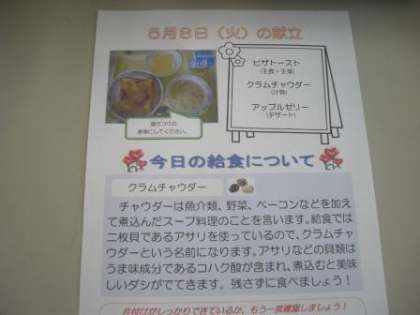 5月8日（火）の献立
ピザトースト
(主食・主菜)
クラムチャウダー
(汁物)
アップルゼリー
(デザート)
盛りつけの
参考にしてください。
今日の給食について
クラムチャウダー
チャウダーは魚介類、野菜、ベーコンなどを加
えて煮込んだスープ料理のことを言います。給食では
二枚貝であるアサリを使っているので、クラムチャ
ウダーという名前になります。アサリなどの貝類は
うま味成分であるコハク酸が含まれ、煮込むと美味
しいダシがでてきます。残さずに食べましょう！
片付けがしっかりできているか、もう一度確認しましょう！